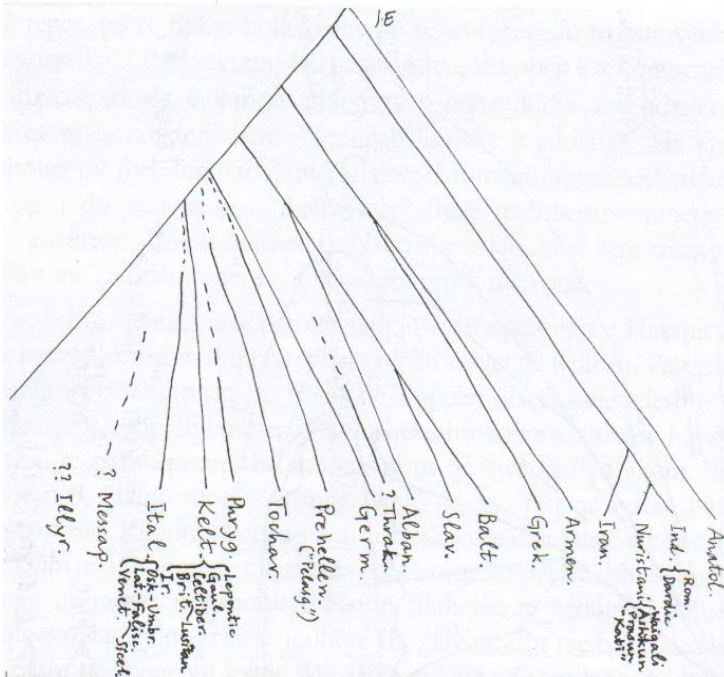 IE
?? Illyr.
Messap
Ital.
Osk-Umbr
Lat-Falisc
Kelt
Lepontic
Gaul
Celtiber
Brit
Ir
Phryg.
Tochar.
Prehellen.
("Pelasg")
Germ.
Thrak.
Alban.
Slav.
Balt
Grk
Armen.
Iran
Nuristani
Waigali
Ashkun
Prasun
Kati
Ind.
Romani
Dardic
Anatol